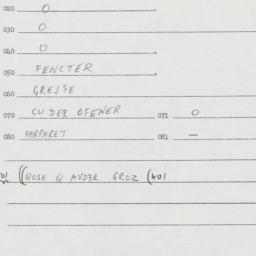 020 0
030 0
040 0
050 FENCTER
060 GRESSE
070 CU DER OFENER 071 0
080 FARPARET 081 —
01 ((ROSE Q AVD3R GROZ (401